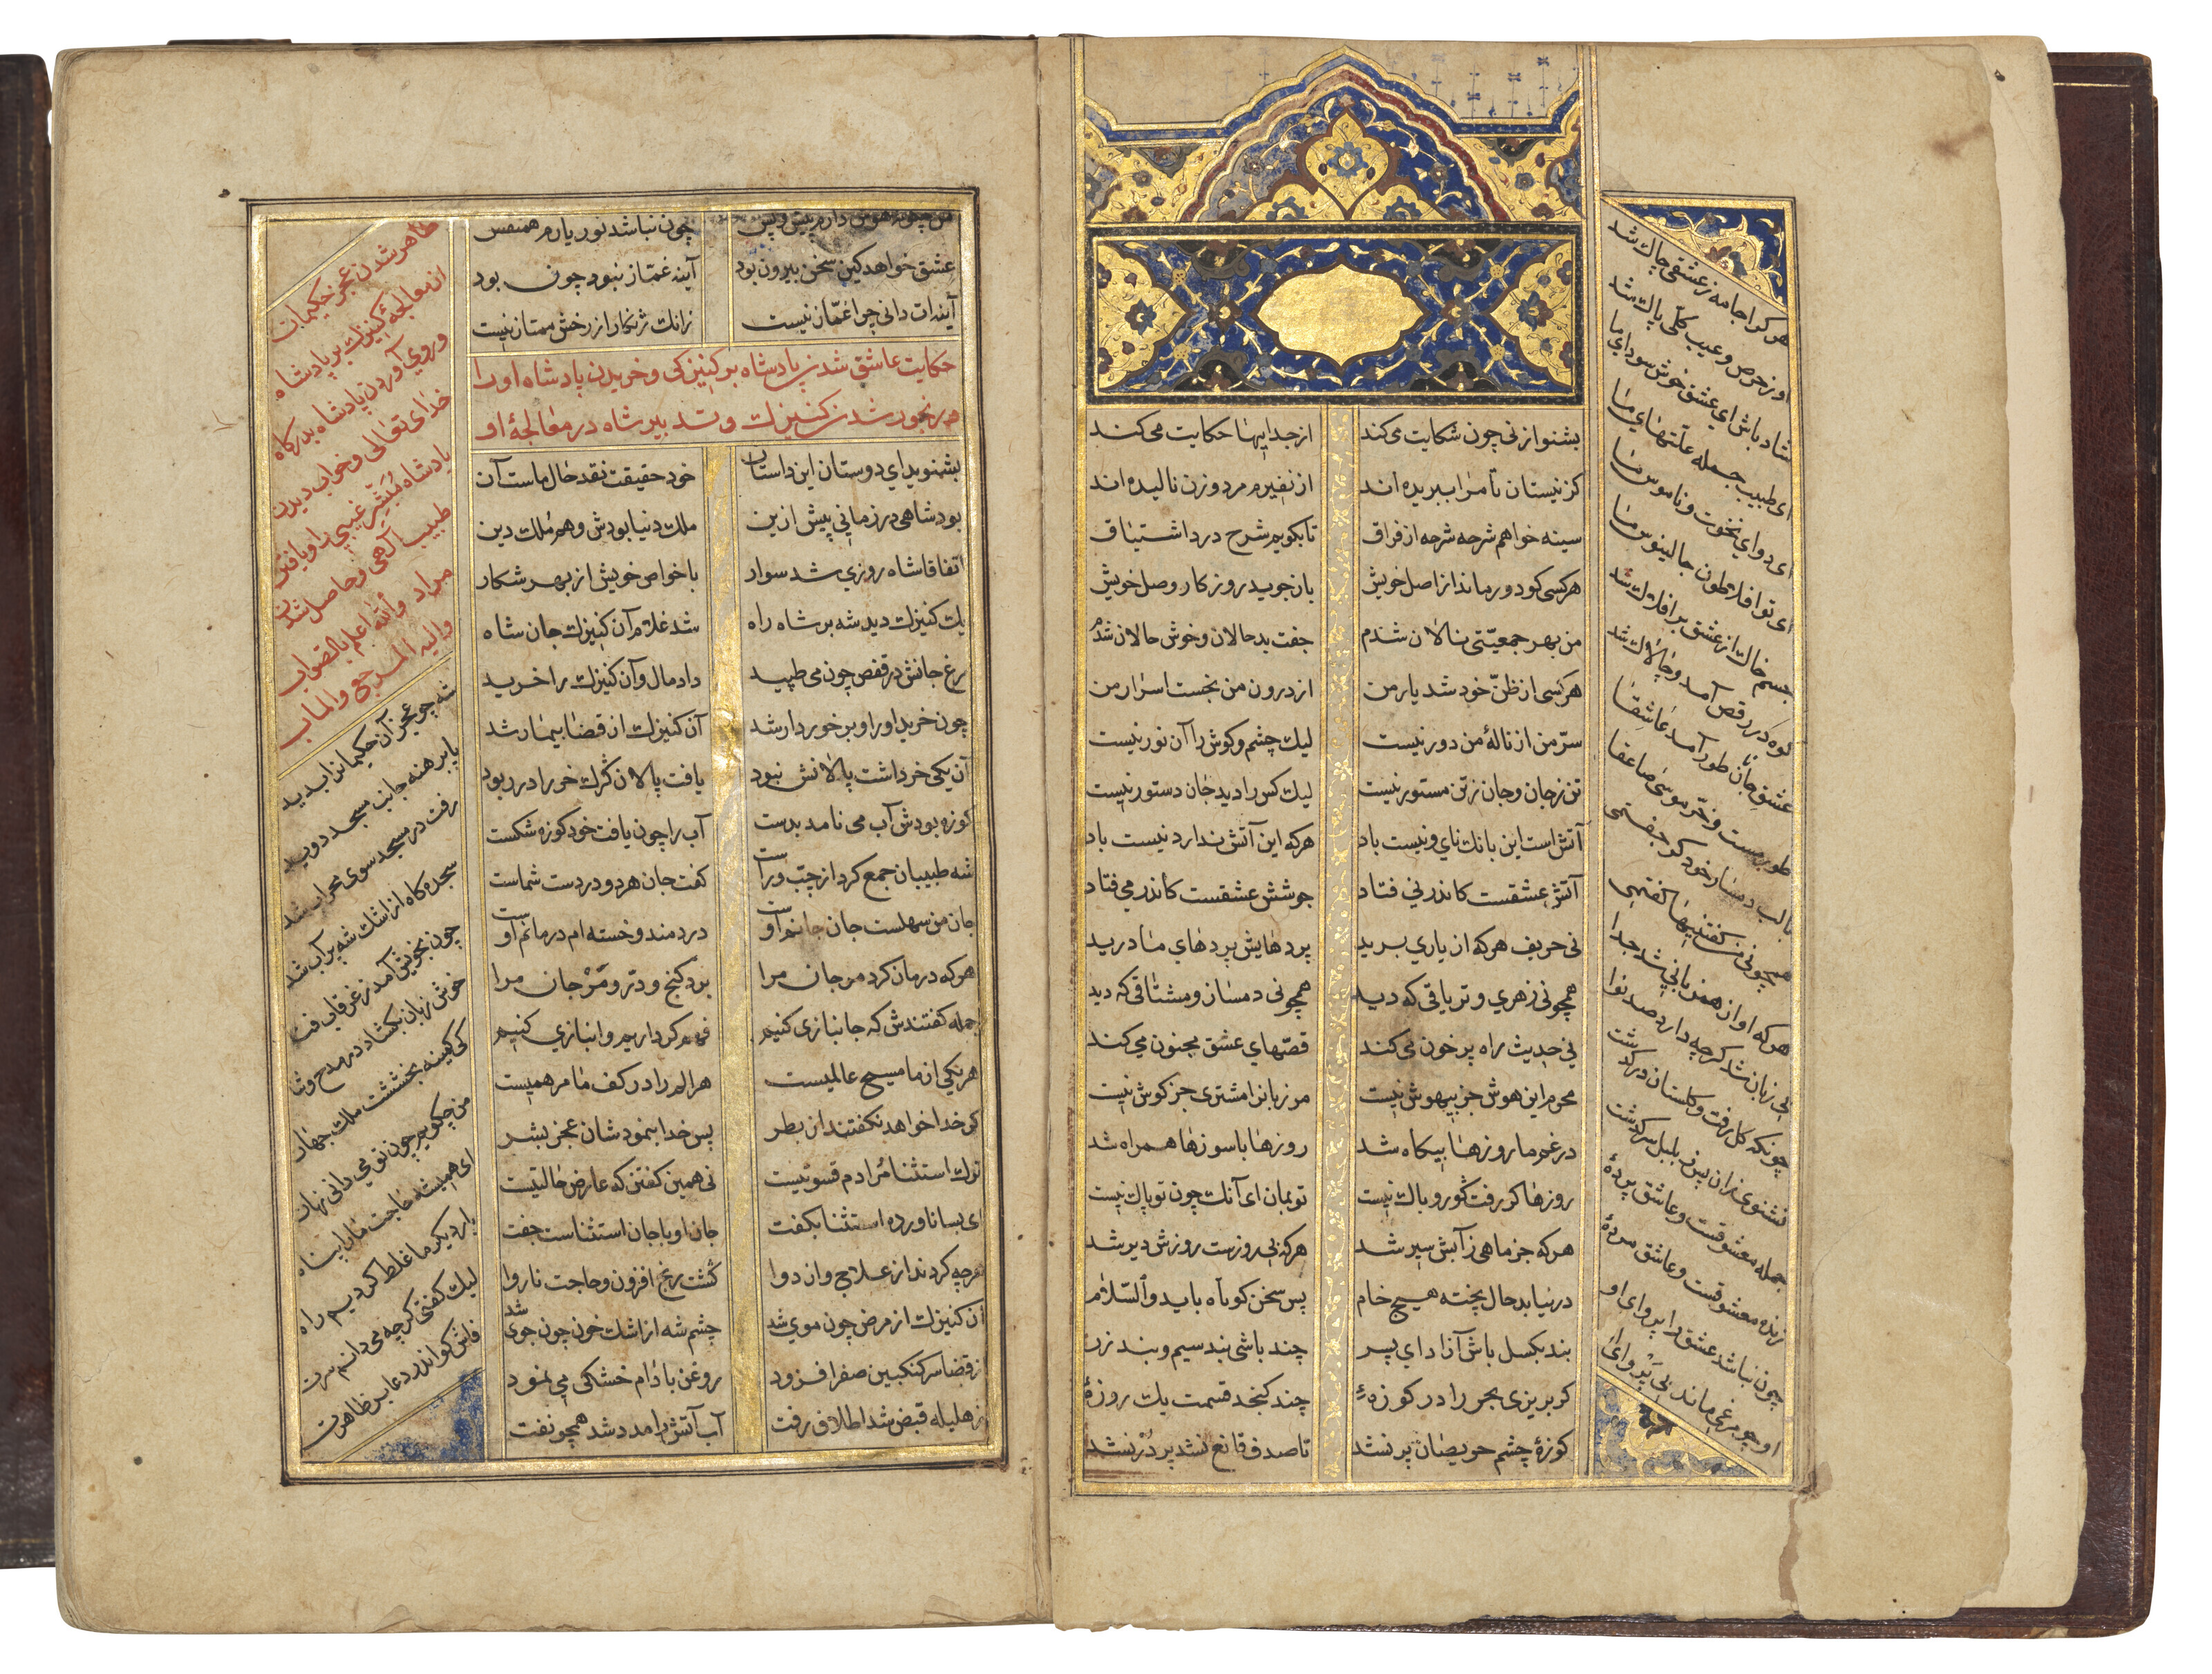 بشنو از نی چون شکایت می کند از جداییها حکایت می کند
کز نیستان تا مرا ببریده اند از نفیرم مرد و زن نالیده اند
سینه خواهم شرحه شرحه از فراق تا بکویم شرح درد اشتیاق
هر کسی کو دور ماند از اصل خویش باز جوید روزکار وصل خویش
من بهر جمعیتی نالان شدم جفت بدحالان و خوش حالان شدم
هر کسی از ظنّ خود شد یار من از درون من نجست اسرار من
سرّ من از نالهٔ من دور نیست لیک چشم و کوش را آن نور نیست
تن ز جان و جان ز تن مستور نیست لیک کس را دید جان دستور نیست
آتش است این بانک نای و نیست باد هر که این آتش ندارد نیست باد
آتش عشقست کاندر نی فتاد جوشش عشقست کاندر می فتاد
نی حریف هر که از یاری برید پردهایش پردهای ما درید
همچو نی زهری و تریاقی که دید همچو نی دمساز و مشتاقی که دید
نی حدیث راه پر خون می کند قصّهای عشق مجنون می کند
محرم این هوش جز بیهوش نیست مر زبانرا مشتری جز کوش نیست
در غم ما روزها بیکاه شد روزها با سوزها همراه شد
روزها کر رفت کو رو باک نیست تو بمان ای آنک چون تو پاک نیست
هر که جز ماهی ز آبش سیر شد هر که بی روزیست روزش دیر شد
در نیابد حال پخته هیچ خام پس سخن کوتاه باید والسّلام
بند بکسل باش آزاد ای پسر چند باشی بند سیم و بند زر
کر بریزی بحر را در کوزهٔ چند کنجد قسمت یک روزهٔ
کوزهٔ چشم حریصان پر نشد تا صدف قانع نشد پر دُر نشد
هر کرا جامه ز عشقی چاک شد
او ز حرص و عیب کلّی پاک شد
شاد باش ای عشق خوش سودای ما
ای طبیب جمله علّتهای ما
ای دوای نخوت و ناموس ما
ای تو افلاطون و جالینوس ما
جسم خاک از عشق بر افلاک شد
کوه در رقص آمد و چالاک شد
عشق جان طور آمد عاشقا
طور مست و خرّ موسی صاعقا
با لب دمساز خود کر جفتمی
همچو نی من کفتنیها کفتمی
هر که او از همزبانی شد جدا
بی زبان شد کرچه دارد صد نوا
چونکه کل رفت و کلستان درکذشت
نشنوی زان پس ز بلبل سرکذشت
جمله معشوقست و عاشق پردهٔ
زنده معشوقست و عاشق مردهٔ
چون نباشد عشق را پروای او
او چو مرغی ماند بی پر وای او
من چکونه هوش دارم پیش و پس چون نباشد نور یارم همنفس
عشق خواهد کین سخن بیرون بود آینه غمّاز نبود چون بود
آینه ات دانی چرا غمّاز نیست زانک زنکار از رخش ممتاز نیست
حکایت عاشق شدن پادشاه بر کنیزکی و خریدن پادشاه او را
و رنجور شدن کنیزک و تدبیر شاه در معالجهٔ او
بشنوید ای دوستان این داستان خود حقیقت نقد حال ماست آن
بود شاهی در زمانی پیش ازین ملک دنیا بودش و هم ملک دین
اتفاقا شاه روزی شد سوار با خواص خویش از بهر شکار
یک کنیزک دید شه بر شاه راه شد غلام آن کنیزک جان شاه
مرغ جانش در قفص چون می طپید داد مال و آن کنیزک را خرید
چون خرید او را و برخوردار شد آن کنیزک از قضا بیمار شد
آن یکی خر داشت پالانش نبود یافت پالان کرک خر را در ربود
کوزه بودش آب می نامد بدست آب را چون یافت خود کوزه شکست
شه طبیبان جمع کرد از چپ و راست کفت جان هر دو در دست شماست
جان من سهلست جان جانم اوست دردمند و خسته ام درمانم اوست
هر که درمان کرد مر جان مرا برد کنج و درّ و مرجان مرا
جمله کفتندش که جانبازی کنیم فهم کرد آریم و انبازی کنیم
هر یکی از ما مسیح عالمیست هر الم را در کف ما مرهمیست
کر خدا خواهد نکفتند از بطر پس خدا بنمودشان عجز بشر
ترک استثنا مرادم قسوتیست نی همین کفتن که عارض حالتیست
ای بسا ناورده استثنا بکفت جان او با جان استثناست جفت
هرچه کردند از علاج و از دوا کشت رنج افزون و حاجت ناروا
آن کنیزک از مرض چون موی شد چشم شه از اشک خون چون جوی شد
از قضا سرکنکبین صفرا فزود روغن بادام خشکی می نمود
از هلیله قبض شد اطلاق رفت آب آتش را مدد شد همچو نفت
ظاهر شدن عجز حکیمان
از معالجهٔ کنیزک بر پادشاه
و روی آوردن پادشاه بدرکاه
خدای تعالی و خواب دیدن
پادشاه مُبشّر غیبی را و یافتن
طبیب آلهی و حاصل شدن
مراد والله اعلم بالصواب
والیه المرجع والمآب
شه چو عجز آن حکیمانرا بدید
پا برهنه جانب مسجد دوید
رفت در مسجد سوی محراب شد
سجده کاه از اشک شه پر آب شد
چون بخویش آمد ز غرقاب فنا
خوش زبان بکشاد در مدح و ثنا
کی کمینه بخششت ملک جهان
من چکویم چون تو می دانی نهان
ای همیشه حاجت ما را پناه
بار دیکر ما غلط کردیم راه
لیک کفتی کرچه می دانم سرت
فاش کو اندر دعا بر ظاهرت